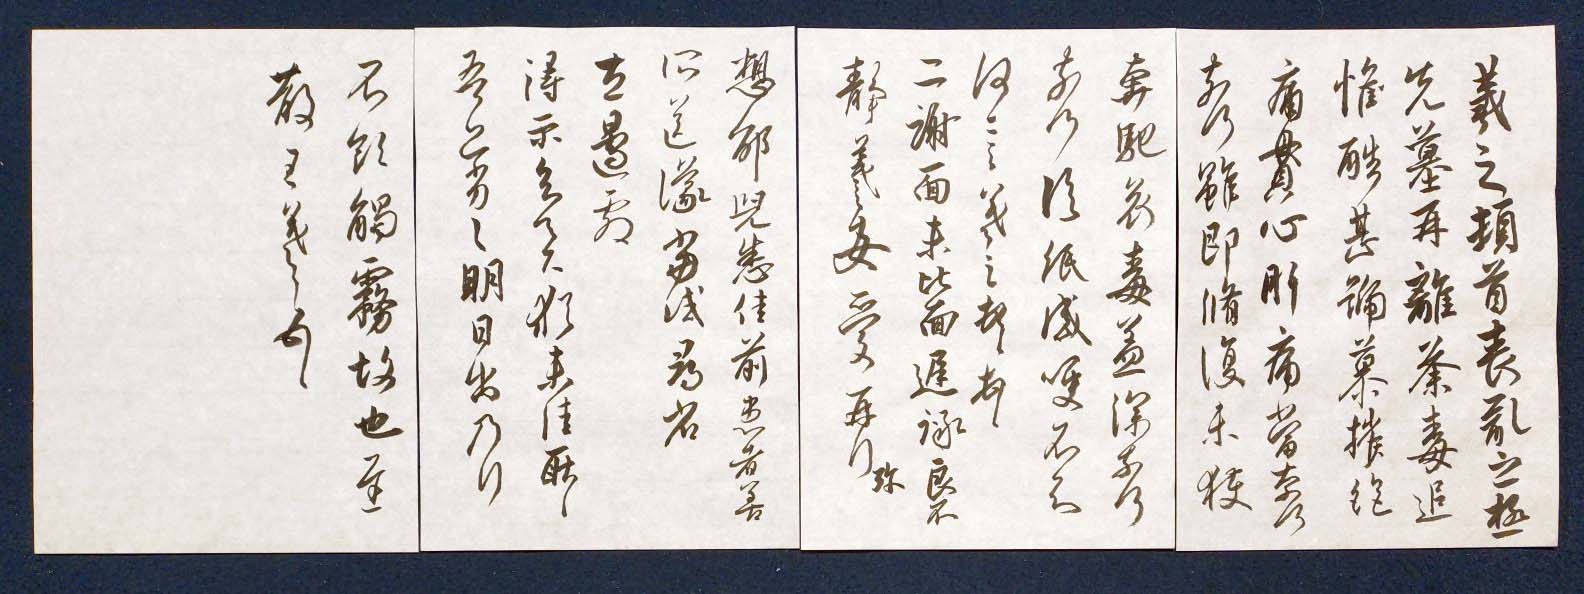 羲之頓首喪亂之極
先墓再離荼毒追
惟酷甚號慕摧絕
痛貫心肝痛當奈何
奈何雖即脩復未獲
奔馳哀毒益深奈何
奈何臨紙感哽不知
何言羲之頓首頓首
二謝面未比面遲詠良不
靜羲之女愛再拜 珍
想邰兒悉佳前患者善
所送議當試尋省
左邊劇
得示知足下猶未佳耿耿
吾亦劣劣明日出乃行
不欲觸霧故也遲
散王羲之頓首